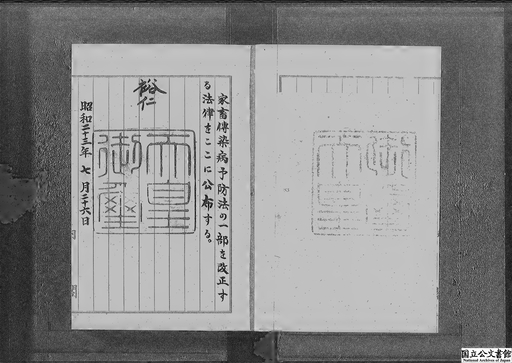 家畜傳染病予防法の一部を改正す
る法律をここに公布する。
裕仁
天皇
御璽
昭和二十三年 七月二十六日
国立公文書館
National Archives of Japan